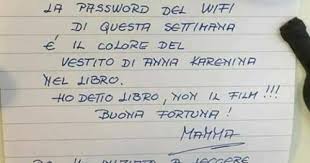 LA PASSWORD DEL WIFI
DI QUESTA SETTIMANA
E' IL COLORE DEL
VESTITO DI ANNA KARENINA
NEL LIBRO.
HO DETTO LIBRO, NON IL FILM!!!
BUONA FORTUNA!
MAMMA